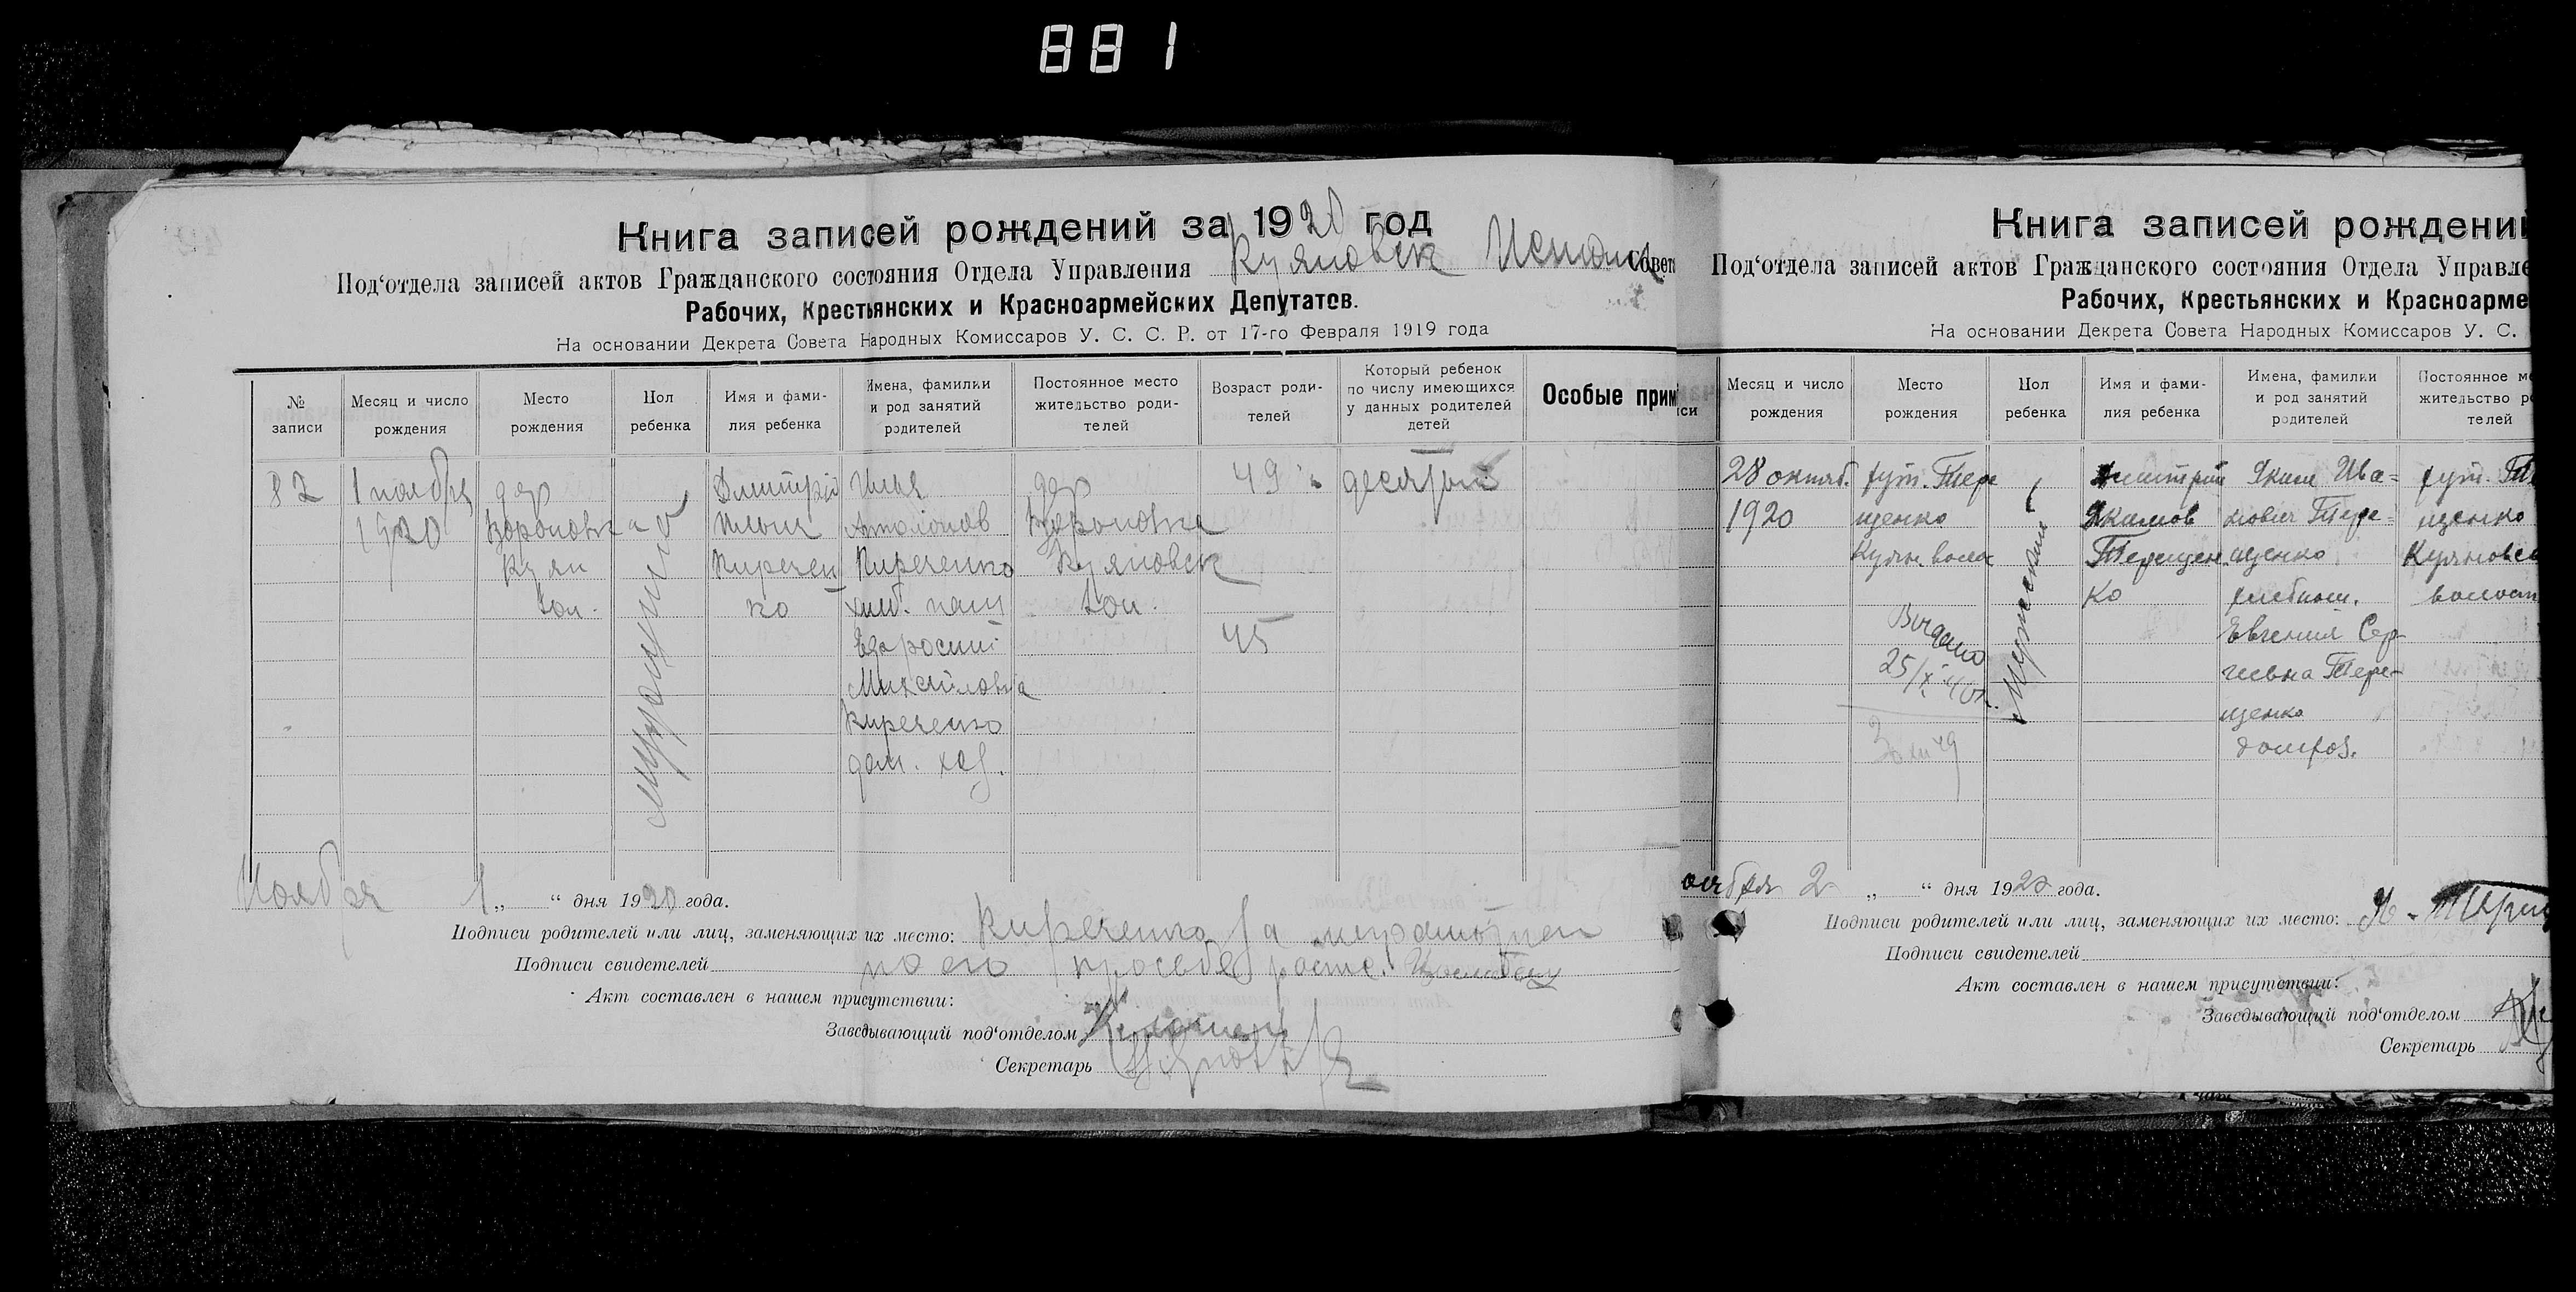 881
Книга записей рождений за 1920 год
Под‘отдела записей актов Гражданского состояния Отдела Управления Куяновск Совет
Рабочих, Крестьянских и Красноармейских Депутатов.
На основании Декрета Совета Народных Комиссаров У. С. С. Р. от 17-го Февраля 1919 года
№ записи
Месяц и число рождения
Место рождения
Пол ребенка
Имя и фамилия ребенка
Имена, фамилии и род занятий родителей
Постоянное место жительство родителей
Возраст родителей
Который ребенок по числу имеющихся у данных родителей детей
Особые прим
82
1 ноября
1920
дер
Вороновка
Куян
вол.
Дмитрий
Ильич
Киречен
ко
Илья
Киреченко
хлеб. паш
Михайловна
Киреченко
дом. хоз.
дер
Вороновка
Куяновск
вол.
49
45
десятый
Ноября 1 „ “ дня 1920 года.
Подписи родителей или лиц, заменяющих их место: Киреченко за
Подписи свидетелей по его просьбе расп.
Акт составлен в нашем присутствии:
Заведывающий под‘отделом
Секретарь
Книга записей рождений
Под‘отдела записей актов Гражданского состояния Отдела Управле
Рабочих, Крестьянских и Красноарме
На основании Декрета Совета Народных Комиссаров У. С.
си
Месяц и число рождения
Место рождения
Пол ребенка
Имя и фамилия ребенка
Имена, фамилии и род занятий родителей
Постоянное ме
жительство ро
телей
28 октяб.
1920
хут. Тере
щенко
Куян. волос
Выдано
25/X 40г.
Мужеский
Дмитрий
Якимов
Терещен
ко
Яким Ива=
нович Тере=
щенко
хлебопаш.
Евгения Сер-
геевна Тере-
щенко
домхоз.
хут. Т
щенко
Куяновск
волост
ября 2 „ “ дня 1920 года.
Подписи родителей или лиц, заменяющих их место:
Подписи свидетелей
Акт составлен в нашем присутствии:
Заведывающий под‘отделом
Секретарь